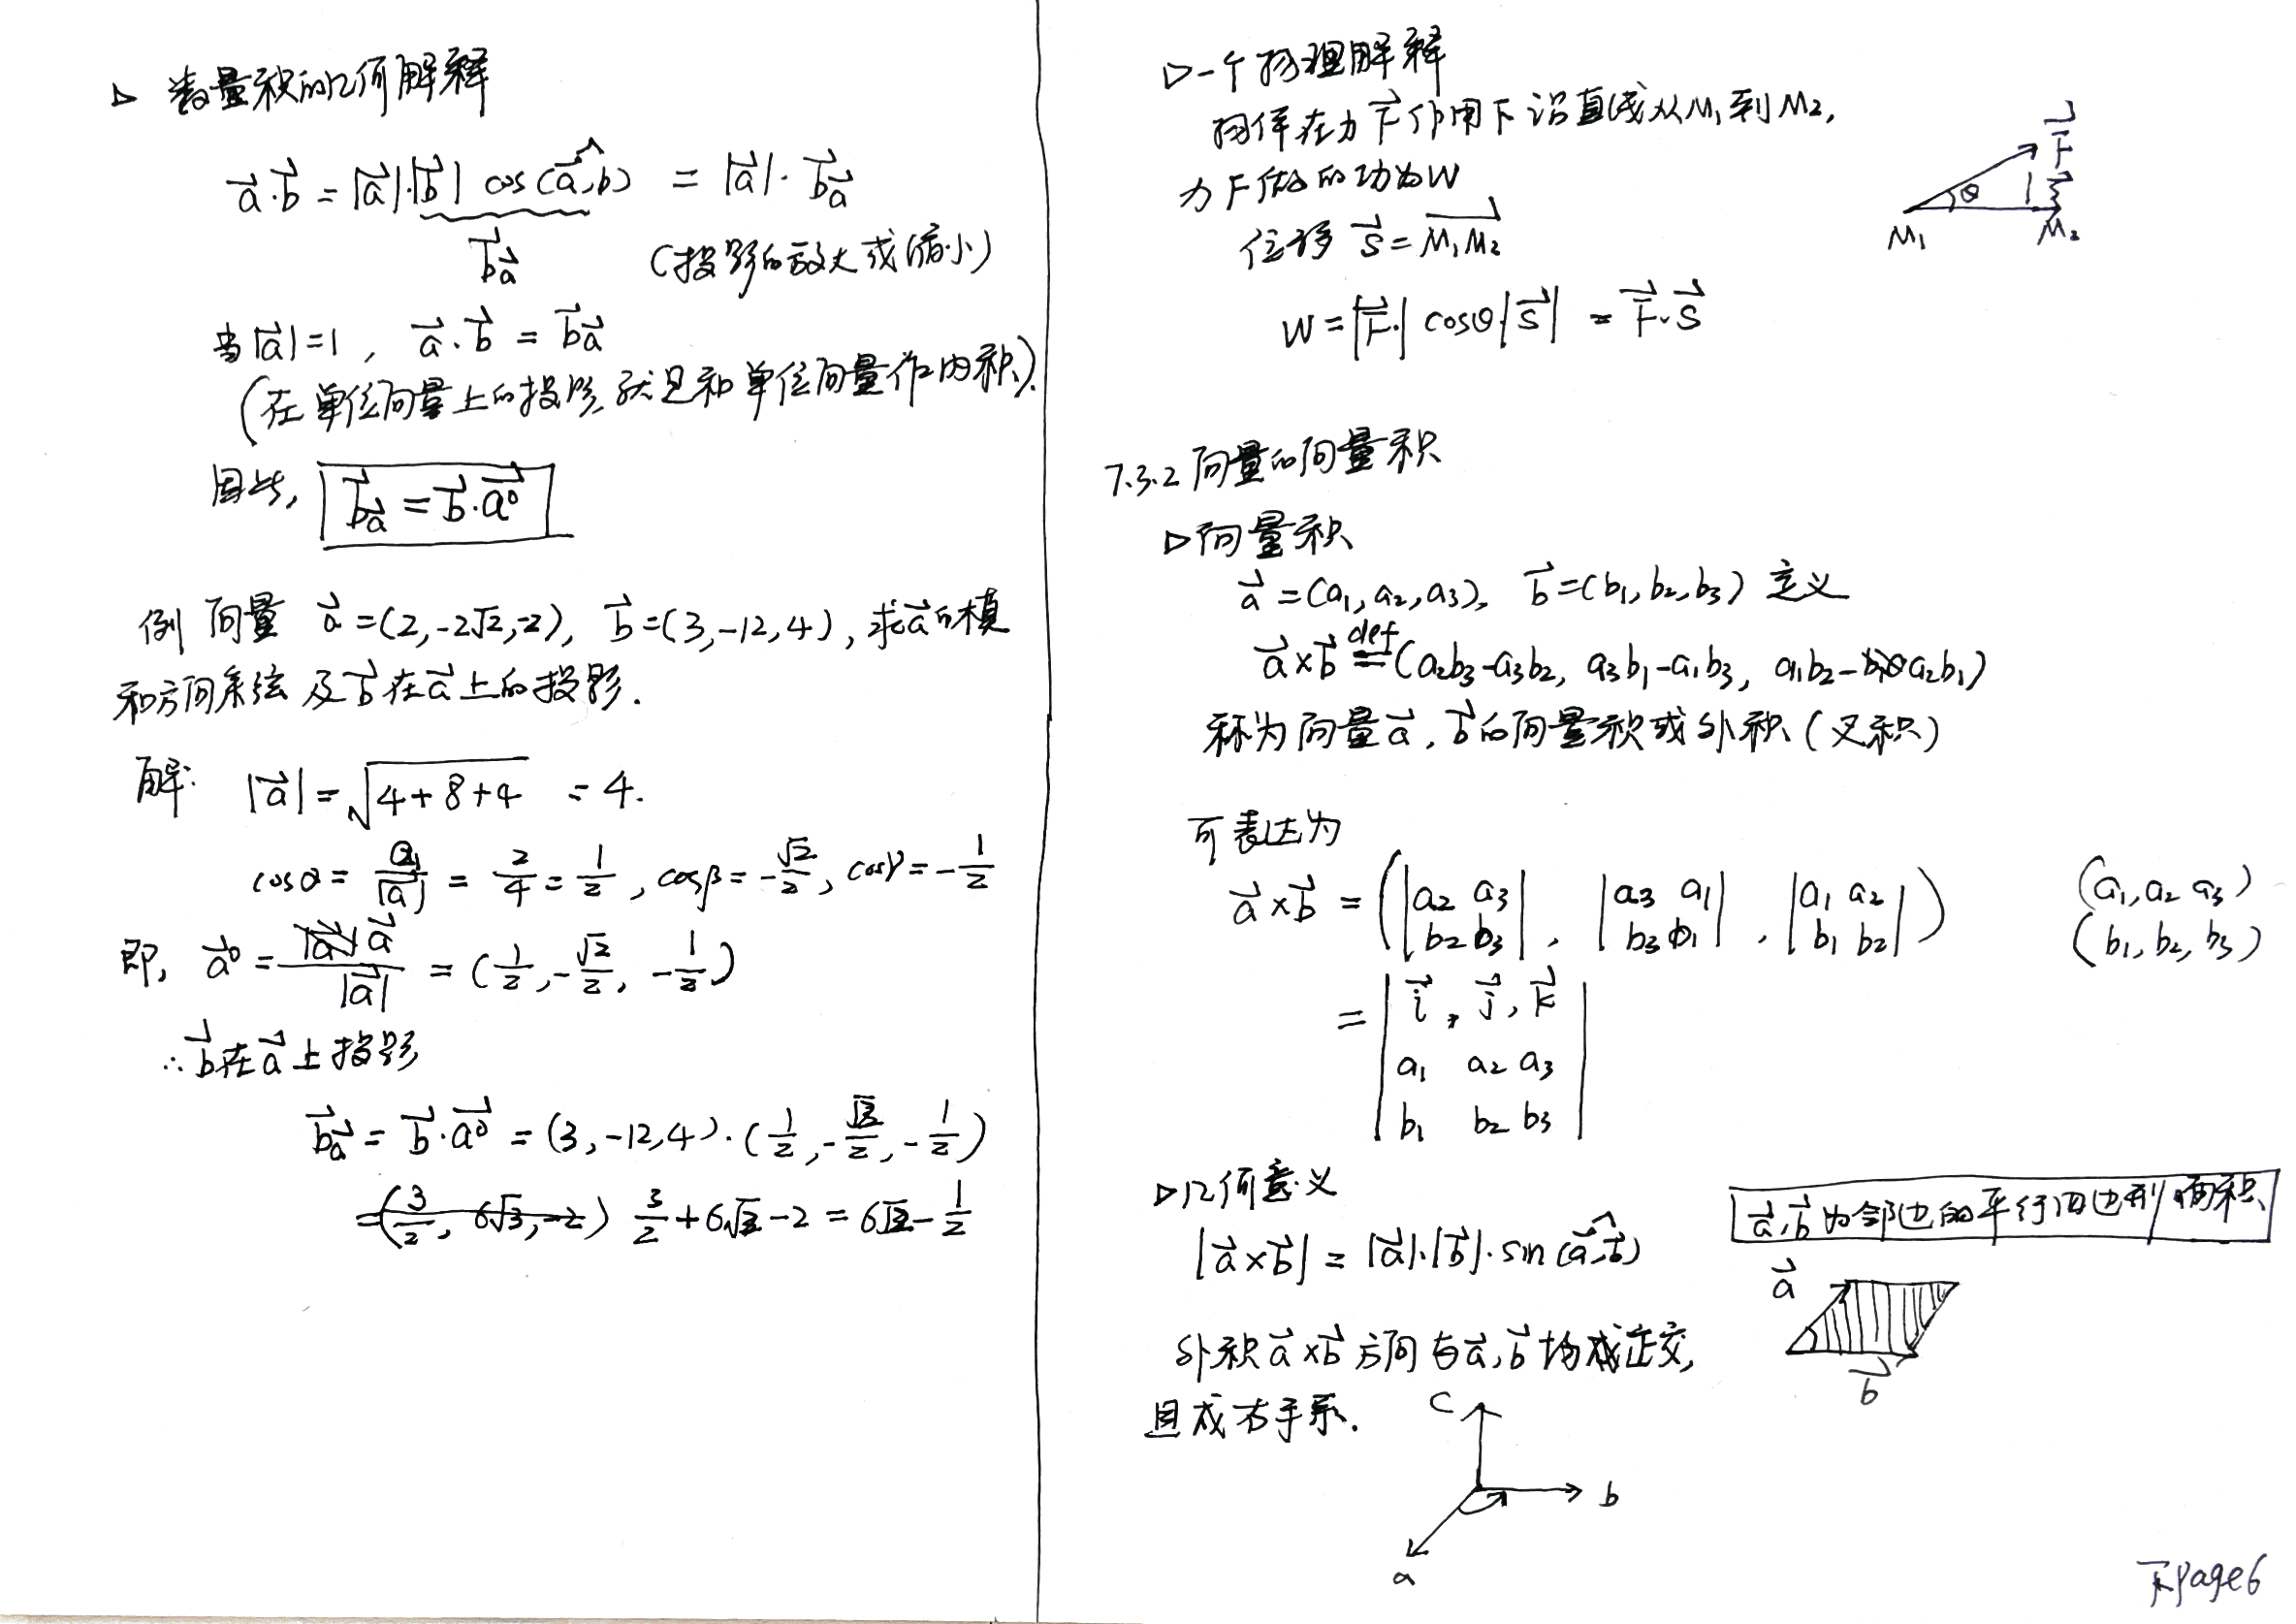 ▷ 数量积的几何解释
a⃗·b⃗ = |a⃗|·|b⃗| cos(a⃗,b) = |a⃗|· b⃗a⃗
b⃗a⃗ (投影的放大或缩小)
当|a⃗|=1, a⃗·b⃗ = b⃗a⃗
(在单位向量上的投影,就是和单位向量作内积).
因此, b⃗a⃗ = b⃗·a⃗⁰
例 向量 a⃗=(2,-2√2,-2), b⃗=(3,-12,4), 求a⃗的模
和方向余弦及b⃗在a⃗上的投影.
解: |a⃗| = √(4+8+4) = 4.
cosα = a₁/|a⃗| = 2/4 = 1/2, cosβ = -√2/2, cosγ = -1/2
即, a⃗⁰ = a⃗/|a⃗| = (1/2, -√2/2, -1/2)
∴ b⃗在a⃗上投影
b⃗a⃗ = b⃗·a⃗⁰ = (3,-12,4)·(1/2, -√2/2, -1/2)
=(3/2, 6√3, -2) 3/2+6√2-2 = 6√2-1/2
▷一个物理解释
物体在力F⃗作用下沿直线从M₁到M₂,
力F做的功为W
位移 S⃗ = M₁M₂⃗
W = |F⃗|·cosθ·|S⃗| = F⃗·S⃗
F⃗
θ
S⃗
M₁ M₂
7.3.2 向量的向量积
▷向量积
a⃗=(a₁,a₂,a₃), b⃗=(b₁,b₂,b₃) 定义
a⃗×b⃗ def= (a₂b₃-a₃b₂, a₃b₁-a₁b₃, a₁b₂-a₂b₁)
称为向量a⃗,b⃗的向量积或外积(叉积)
可表达为
a⃗×b⃗ = (|a₂ a₃|, |a₃ a₁|, |a₁ a₂|) (a₁,a₂ a₃)
|b₂ b₃| |b₃ b₁| |b₁ b₂| (b₁,b₂,b₃)
= | i⃗, j⃗, k⃗ |
| a₁ a₂ a₃ |
| b₁ b₂ b₃ |
▷几何意义
a⃗,b⃗为邻边的平行四边形面积
|a⃗×b⃗| = |a⃗|·|b⃗|·sin(a⃗,b⃗)
a⃗
b⃗
外积a⃗×b⃗方向与a⃗,b⃗均成正交,
且成右手系.
c
b
a
下page6